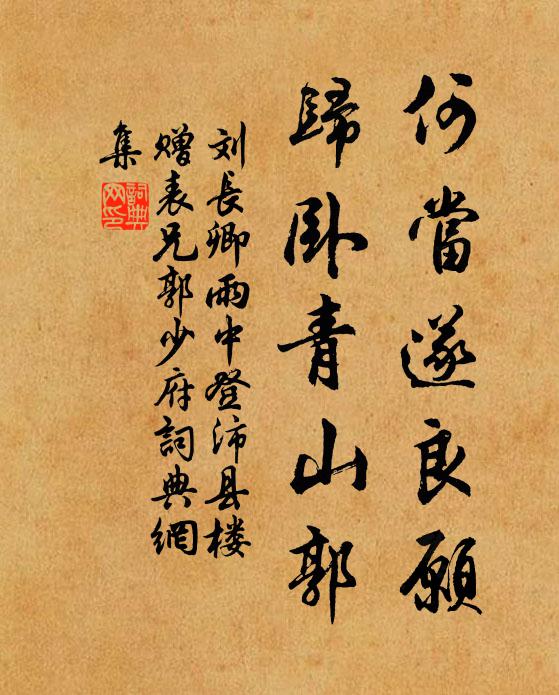 何當遂良願
歸臥青山郭
刘長卿雨中登沛县楼
赠表兄郭少府詞典網
集
詞典網印